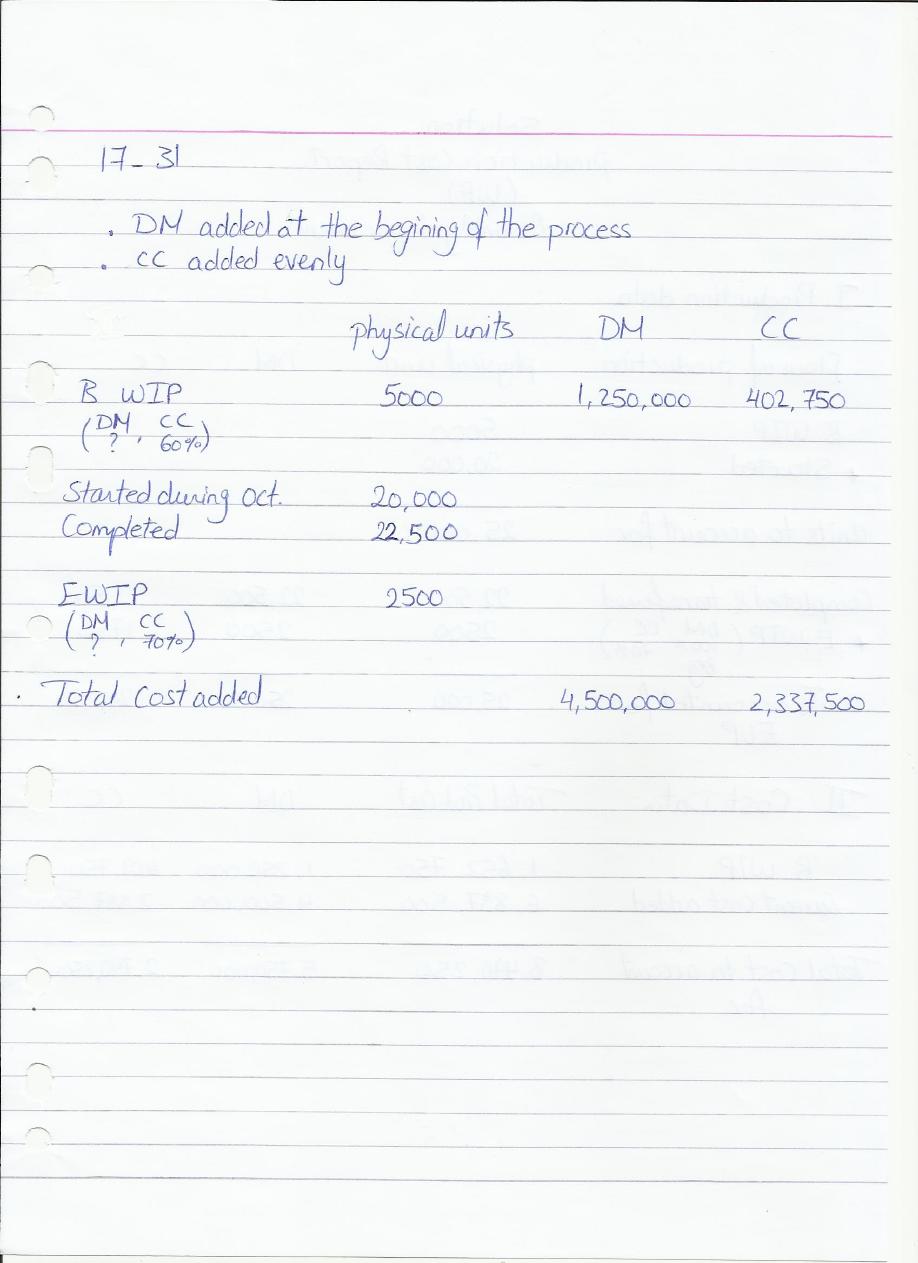 17-31
. DM added at the begining of the process
. CC added evenly
physical units DM CC
B WIP 5000 1,250,000 402,750
(DM ?, CC 60%)
Started during Oct. 20,000
Completed 22,500
EWIP 2500
(DM ?, CC 70%)
. Total Cost added 4,500,000 2,337,500